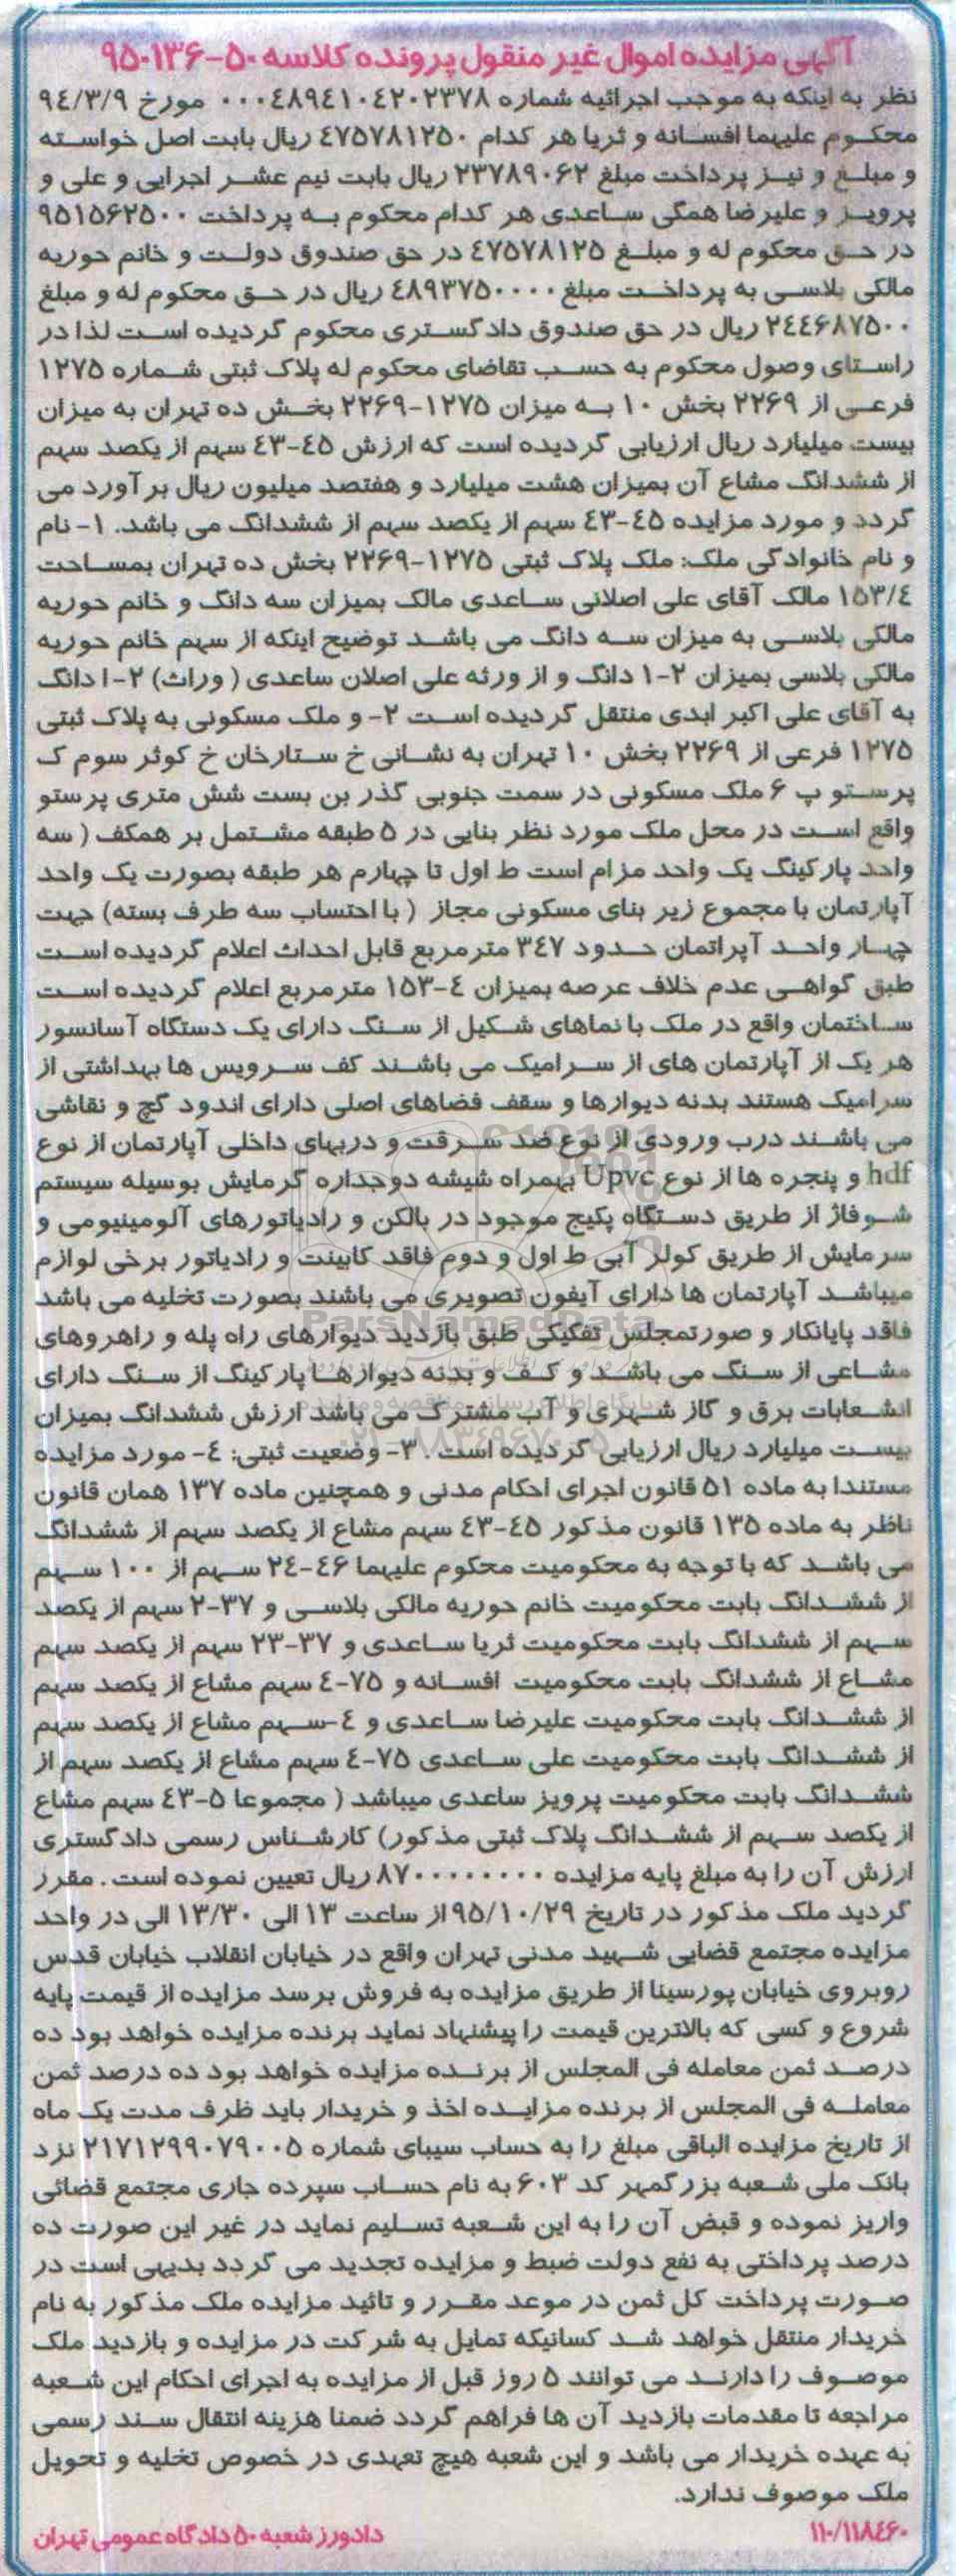 آگهی مزایده اموال غیر منقول پرونده کلاسه ۵۰-۹۵۰۱۳۶
نظر به اینکه به موجب اجرائیه شماره ۰۰۰۴۸۹۴۱۰۴۲۰۲۳۷۸ مورخ ۹۴/۳/۹
محکوم علیهما افسانه و ثریا هر کدام ۴۷۵۷۸۱۲۵۰ ریال بابت اصل خواسته
و مبلغ و نیز پرداخت مبلغ ۲۳۷۸۹۰۶۲ ریال بابت نیم عشر اجرایی و علی و
پرویز و علیرضا همگی ساعدی هر کدام محکوم به پرداخت ۹۵۱۵۶۲۵۰۰
در حق محکوم له و مبلغ ۴۷۵۷۸۱۲۵ در حق صندوق دولت و خانم حوریه
مالکی بلاسی به پرداخت مبلغ ۴۸۹۳۷۵۰۰۰۰ ریال در حق محکوم له و مبلغ
۲۴۴۶۸۷۵۰۰ ریال در حق صندوق دادگستری محکوم گردیده است لذا در
راستای وصول محکوم به حسب تقاضای محکوم له پلاک ثبتی شماره ۱۲۷۵
فرعی از ۲۲۶۹ بخش ۱۰ به میزان ۱۲۷۵-۲۲۶۹ بخش ده تهران به میزان
بیست میلیارد ریال ارزیابی گردیده است که ارزش ۴۵-۴۳ سهم از یکصد سهم
از ششدانگ مشاع آن بمیزان هشت میلیارد و هفتصد میلیون ریال برآورد می
گردد و مورد مزایده ۴۵-۴۳ سهم از یکصد سهم از ششدانگ می باشد. ۱- نام
و نام خانوادگی ملک: ملک پلاک ثبتی ۱۲۷۵-۲۲۶۹ بخش ده تهران بمساحت
۱۵۳/۴ مالک آقای علی اصلانی ساعدی مالک بمیزان سه دانگ و خانم حوریه
مالکی بلاسی به میزان سه دانگ می باشد توضیح اینکه از سهم خانم حوریه
مالکی بلاسی بمیزان ۲-۱ دانگ و از ورثه علی اصلان ساعدی ( وراث) ۲-۱ دانگ
به آقای علی اکبر ابدی منتقل گردیده است ۲- و ملک مسکونی به پلاک ثبتی
۱۲۷۵ فرعی از ۲۲۶۹ بخش ۱۰ تهران به نشانی خ ستارخان خ کوثر سوم ک
پرستو پ ۶ ملک مسکونی در سمت جنوبی گذر بن بست شش متری پرستو
واقع است در محل ملک مورد نظر بنایی در ۵ طبقه مشتمل بر همکف ( سه
واحد پارکینگ یک واحد مزام است ط اول تا چهارم هر طبقه بصورت یک واحد
آپارتمان با مجموع زیر بنای مسکونی مجاز ( با احتساب سه طرف بسته) جهت
چهار واحد آپراتمان حدود ۳۴۷ مترمربع قابل احداث اعلام گردیده است
طبق گواهی عدم خلاف عرصه بمیزان ۴-۱۵۳ مترمربع اعلام گردیده است
ساختمان واقع در ملک با نماهای شکیل از سنگ دارای یک دستگاه آسانسور
هر یک از آپارتمان های از سرامیک می باشند کف سرویس ها بهداشتی از
سرامیک هستند بدنه دیوارها و سقف فضاهای اصلی دارای اندود گچ و نقاشی
می باشند درب ورودی از نوع ضد سرقت و دربهای داخلی آپارتمان از نوع
hdf و پنجره ها از نوع Upvc بهمراه شیشه دوجداره گرمایش بوسیله سیستم
شوفاژ از طریق دستگاه پکیج موجود در بالکن و رادیاتورهای آلومینیومی و
سرمایش از طریق کولر آبی ط اول و دوم فاقد کابینت و رادیاتور برخی لوازم
میباشد آپارتمان ها دارای آیفون تصویری می باشند بصورت تخلیه می باشد
فاقد پایانکار و صورتمجلس تفکیکی طبق بازدید دیوارهای راه پله و راهروهای
مشاعی از سنگ می باشد و کف و بدنه دیوارها پارکینگ از سنگ دارای
انشعابات برق و گاز شهری و آب مشترک می باشد ارزش ششدانگ بمیزان
بیست میلیارد ریال ارزیابی گردیده است . ۳- وضعیت ثبتی: ۴- مورد مزایده
مستندا به ماده ۵۱ قانون اجرای احکام مدنی و همچنین ماده ۱۳۷ همان قانون
ناظر به ماده ۱۳۵ قانون مذکور ۴۵-۴۳ سهم مشاع از یکصد سهم از ششدانگ
می باشد که با توجه به محکومیت محکوم علیهما ۴۶-۲۴ سهم از ۱۰۰ سهم
از ششدانگ بابت محکومیت خانم حوریه مالکی بلاسی و ۳۷-۲ سهم از یکصد
سهم از ششدانگ بابت محکومیت ثریا ساعدی و ۳۷-۲۳ سهم از یکصد سهم
مشاع از ششدانگ بابت محکومیت افسانه و ۷۵-۴ سهم مشاع از یکصد سهم
از ششدانگ بابت محکومیت علیرضا ساعدی و ۴-سهم مشاع از یکصد سهم
از ششدانگ بابت محکومیت علی ساعدی ۷۵-۴ سهم مشاع از یکصد سهم از
ششدانگ بابت محکومیت پرویز ساعدی میباشد ( مجموعا ۵-۴۳ سهم مشاع
از یکصد سهم از ششدانگ پلاک ثبتی مذکور) کارشناس رسمی دادگستری
ارزش آن را به مبلغ پایه مزایده ۸۷۰۰۰۰۰۰۰۰ ریال تعیین نموده است . مقرر
گردید ملک مذکور در تاریخ ۹۵/۱۰/۲۹ از ساعت ۱۳ الی ۱۳/۳۰ الی در واحد
مزایده مجتمع قضایی شهید مدنی تهران واقع در خیابان انقلاب خیابان قدس
روبروی خیابان پورسینا از طریق مزایده به فروش برسد مزایده از قیمت پایه
شروع و کسی که بالاترین قیمت را پیشنهاد نماید برنده مزایده خواهد بود ده
درصد ثمن معامله فی المجلس از برنده مزایده خواهد بود ده درصد ثمن
معامله فی المجلس از برنده مزایده اخذ و خریدار باید ظرف مدت یک ماه
از تاریخ مزایده الباقی مبلغ را به حساب سیبای شماره ۲۱۷۱۲۹۹۰۷۹۰۰۵ نزد
بانک ملی شعبه بزرگمهر کد ۶۰۳ به نام حساب سپرده جاری مجتمع قضائی
واریز نموده و قبض آن را به این شعبه تسلیم نماید در غیر این صورت ده
درصد پرداختی به نفع دولت ضبط و مزایده تجدید می گردد بدیهی است در
صورت پرداخت کل ثمن در موعد مقرر و تائید مزایده ملک مذکور به نام
خریدار منتقل خواهد شد کسانیکه تمایل به شرکت در مزایده و بازدید ملک
موصوف را دارند می توانند ۵ روز قبل از مزایده به اجرای احکام این شعبه
مراجعه تا مقدمات بازدید آن ها فراهم گردد ضمنا هزینه انتقال سند رسمی
به عهده خریدار می باشد و این شعبه هیچ تعهدی در خصوص تخلیه و تحویل
ملک موصوف ندارد.
۱۱۰/۱۱۸۴۶۰ دادورز شعبه ۵۰ دادگاه عمومی تهران
ParsNamadData